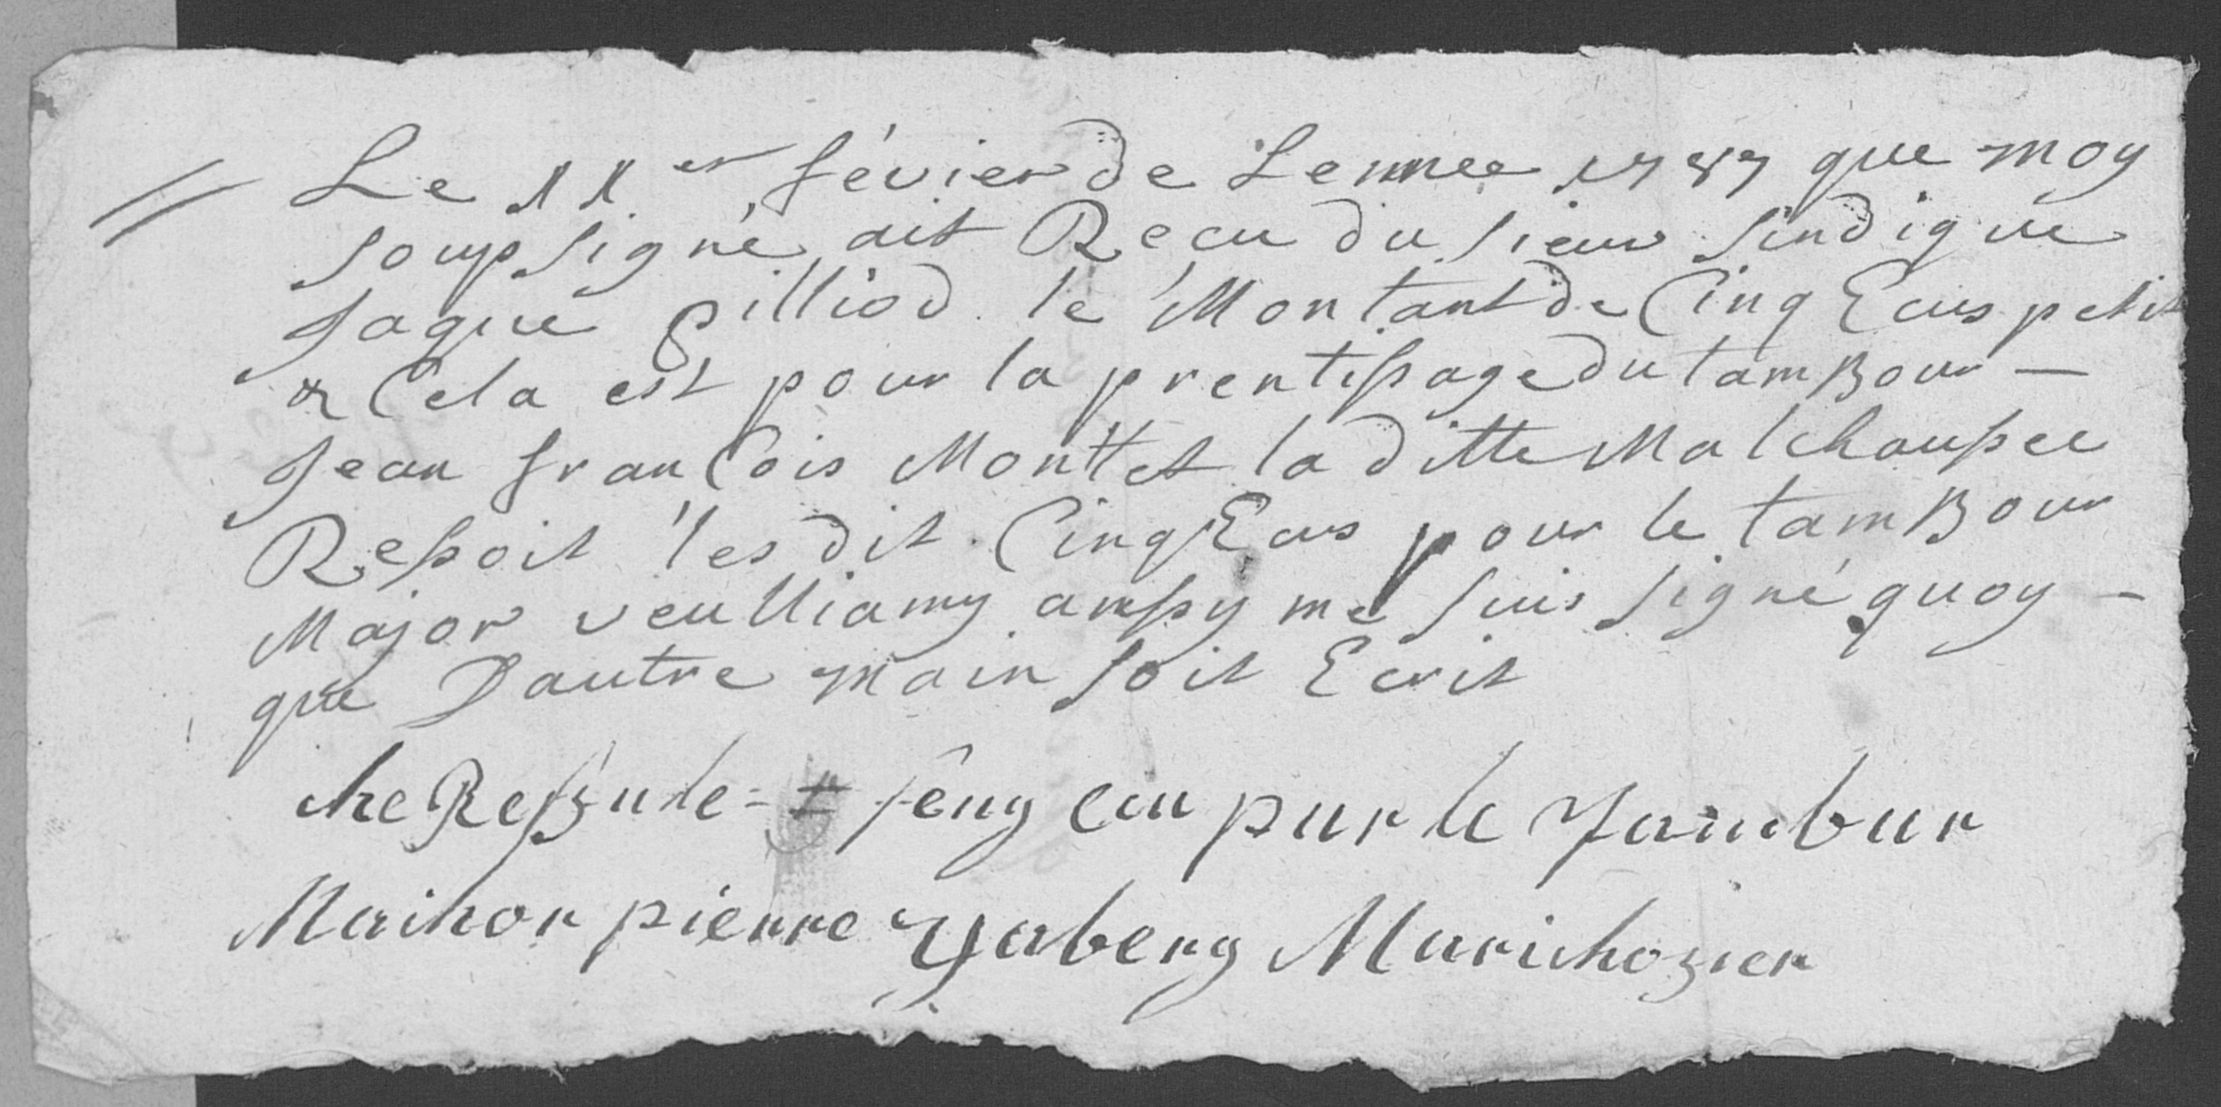 // Le 11er févier de Lennee 1787 que moy
soupsigné ait Recu du sieur sindique
Jaque Gilliod le Montant de Cinq Ecus petit
& Cela est pour la prentissage du tamBour —
Jean franCois Monttet la ditte Malchaussee
Ressoit les dit Cinq Ecus pour le tamBour
Major veulliamy aussy me suis signé quoy —
que Dautre main soit Ecrit
che Ressu le = sênq ecu pur le Tambur
Maihor pierre Yaberg Marichozier